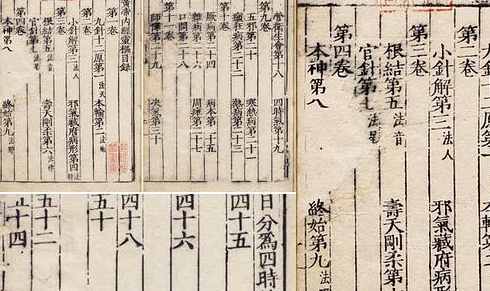 黃帝內經靈樞目錄
第一卷
九針十二原第一 法天 本輸第二
第二卷
小針解第三 法人 邪氣藏府病形第四
第三卷
根結第五 法音 壽夭剛柔第六
官針第七 法星
第四卷
本神第八 終始第九 法野
營衛生會第十八 四時氣第十九
第九卷
五邪第二十 寒熱病第二十一
癲狂病第二十二 熱病第二十三
第十卷
厥病第二十四 病本第二十五
雜病第二十六 周痺第二十七
口問第二十八
師傳第二十九 決氣第三十
十二原第一
第二卷
小針解第三 法人 邪氣藏府病形
第三卷
根結第五 法音 壽夭剛柔第
官針第七 法星
第四卷
本神第八 終始第九 法野
日分為四時
四十五
四十六
四十八
五十
五十二
五十四